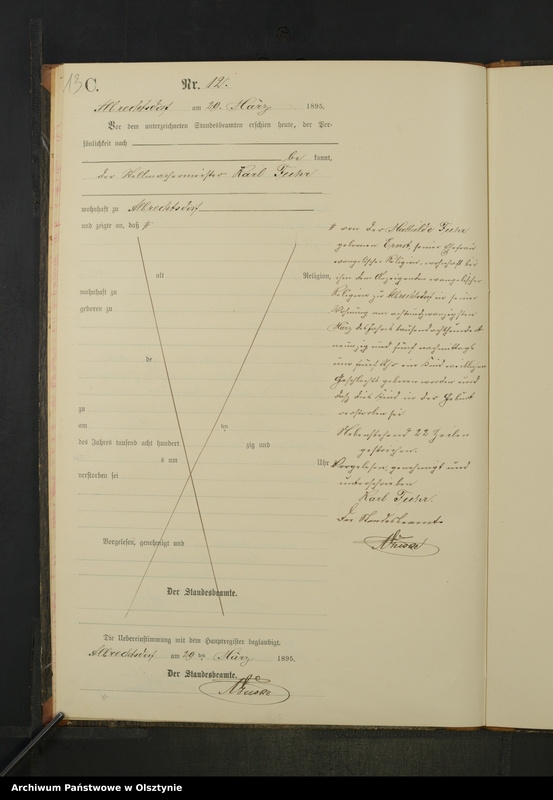 13 C. Nr. 12.
Albrechtsdorf am 20. März 1895.
Vor dem unterzeichneten Standesbeamten erschien heute, der Per-
sönlichkeit nach
be kannt,
der Stellmachermeister Karl
wohnhaft zu Albrechtsdorf
und zeigte an, daß
alt Religion,
wohnhaft zu
geboren zu
de
zu
am ten
des Jahres tausend acht hundert zig und
s um Uhr
verstorben sei
Vorgelesen, genehmigt und
Der Standesbeamte.
von der Mathilde
geborenen Ernst, seiner Ehefrau
evangelischer Religion, wohnhaft bei
ihm dem Anzeigenden evangelischer
Religion zu Albrechtsdorf in seiner
Wohnung am achtundzwanzigsten
März des Jahres tausend achthundert
neunzig und fünf nachmittags
um fünf Uhr ein Kind weiblichen
Geschlechts geboren worden und
daß dies Kind in der Geburt
verstorben sei
Nebenstehend 22 Zeilen
gestrichen.
Vorgelesen, genehmigt und
unterschrieben
Karl
Der Standesbeamte
Die Uebereinstimmung mit dem Hauptregister beglaubigt.
Albrechtsdorf am ten März 1895.
Der Standesbeamte.
Archiwum Państwowe w Olsztynie